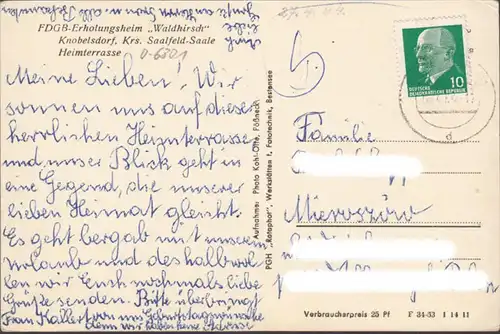 FDGB-Erholungsheim „Waldhirsch"
Knobelsdorf, Krs. Saalfeld-Saale
Heimterrasse
0-6821
Meine Lieben! Wir
sonnen uns auf dieser
herrlichen Heimterrasse
und unser Blick geht in
eine Gegend, die unserer
lieben Heimat gleicht.
Es geht bergab mit unserem
Urlaub und deshalb wol-
len wir Euch nochmals liebe
Grüße senden. Bitte überbringt
Frau Kallert von uns Geburtstagswünsche
Aufnahme: Photo Kohl-Otte, Pößneck
PGH „Rotophot", Werkstätten f. Fototechnik, Bestensee
10
DEUTSCHE
DEMOKRATISCHE REPUBLIK
Familie
Mieroszów
Verbraucherpreis 25 Pf F 34-53 I 14 11